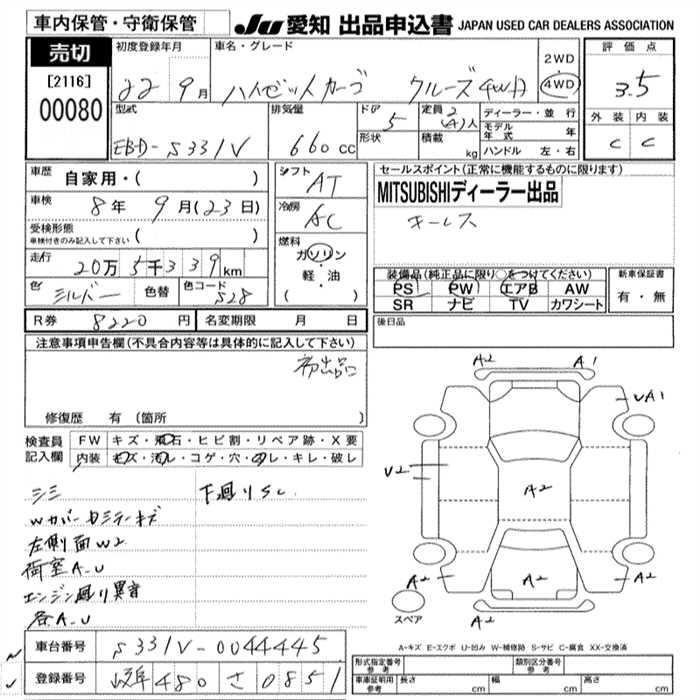 車内保管・守衛保管
JU 愛知 出品申込書 JAPAN USED CAR DEALERS ASSOCIATION
売切
[2116]
00080
初度登録年月
22 9月
車名・グレード
ハイゼットカーゴ クルーズ4WD
2WD
4WD
評価点
3.5
外装 内装
C C
型式
EBD-S331V
排気量
660cc
ドア
5
形状
定員 2
(4)人
積載
kg
ディーラー・並行
モデル年式 年
ハンドル 左・右
車歴 自家用・( )
車検 8年 9月(23日)
受検形態
車検付きのみ記入して下さい ( )
走行 20万5千339km
色 シルバー 色替 色コード S28
シフト AT
冷房 AC
燃料
ガソリン
・
軽・油
( )
セールスポイント(正常に機能するものに限ります)
MITSUBISHIディーラー出品
キーレス
装備品(純正品に限り○をつけてください)
PS PW エアB AW
SR ナビ TV カワシート
新車保証書
有・無
R券 8220円 名変期限 月 日
後日品
注意事項申告欄(不具合内容等は具体的に記入して下さい)
初出品
修復歴 有(箇所 )
検査員記入欄
FW キズ・飛石・ヒビ割・リペア跡・X要
内装 キズ・汚レ・コゲ・穴・スレ・キレ・破レ
シミ
下廻りSC
Wカバー
キズ
左側面W2
荷室A.U
エンジン廻り異音
各A.U
A2 A1
UA1
U2
A2
A2 A2 A2
A2
スペア
A-キズ E-エクボ U-凹み W-補修跡 S-サビ C-腐食 XX-交換済
車台番号 S331V-0044445
登録番号 岐阜 480 さ 0851
形式指定番号
参考
類別区分番号
参考
車庫証明用
参考
長さ cm
幅 cm
高さ cm